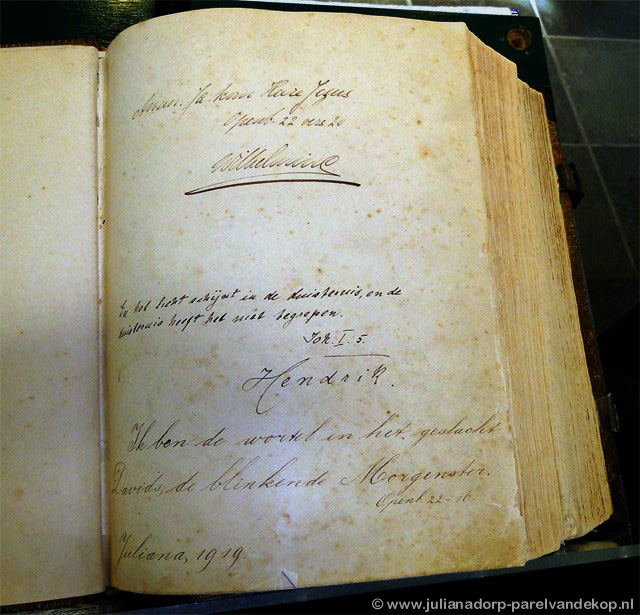 Amen. Ja kom Heere Jezus
Openb. 22 vers 20
Wilhelmina
En het licht schijnt in de duisternis, en de
duisternis heeft het niet begrepen.
Joh. I. 5.
Hendrik.
Ik ben de wortel in het geslacht
Davids, de blinkende Morgenster.
Openb. 22-16.
Juliana, 1919.
© www.julianadorp-parelvandekop.nl